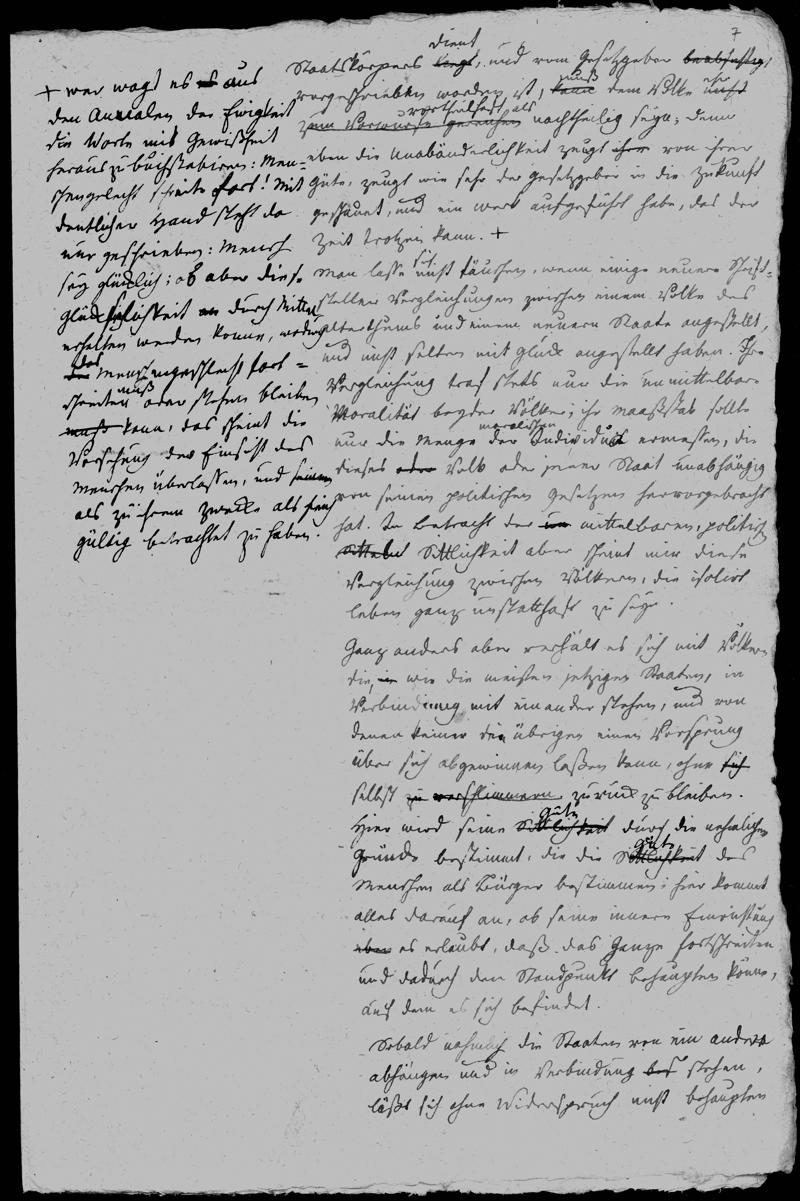 7
Staatskörpers dient liegt, und vom Gesetzgeber beabsichtigt
vorgeschrieben worden ist, muß kann dem Volke eher nicht
zum Vorwurfe gereichen vortheilhaft als nachtheilig seyn; denn
eben die Unabänderlichkeit zeugt ihrer von ihrer
Güte, zeugt wie sehr der Gesetzgeber in die Zukunft
geschauet, und ein Werk aufgeführt habe, das der
Zeit trotzen kann. +
Man lasse sich nicht täuschen, wenn einige neuere Schrift-
steller Vergleichungen zwischen einem Volke des
Alterthums und einem neuern Staate angestellt,
und nicht selten mit Glück angestellt haben. Ihre
Vergleichung traf stets nur die unmittelbare
Moralität beyder Völker; ihr Maaßstab sollte
nur die Menge der moralischen Individuen ermessen, die
dieses oder Volk oder jener Staat unabhängig
von seinen politischen Gesetzen hervorgebracht
hat. In Betracht der un mittelbaren, politischen
Sittlichkeit aber scheint mir diese
Vergleichung zwischen Völkern, die isolirt
leben ganz unstatthaft zu seyn.
Ganz anders aber verhält es sich mit Völkern
die, in wie die meisten jetzigen Staaten, in
Verbindung mit einander stehen, und von
denen keiner die übrigen einen Vorsprung
über sich abgewinnen laßen kann, ohne sich
selbst zu verschlimmern zurück zu bleiben.
Hier wird seine Sittlichkeit Güte durch die nehmlichen
Gründe bestimmt, die die Sittlichkeit Güte des
Menschen als Bürger bestimmen; hier kommt
alles darauf an, ob seine innere Einrichtung
eben es erlaubt, daß das Ganze fortschreiten
und dadurch den Standpunkt behaupten könne,
auf dem es sich befindet.
Sobald nehmlich die Staaten von ein ander
abhängen und in Verbindung stehen,
läßt sich ohne Widerspruch nicht behaupten
+ wer wagt es es aus
den Annalen der Ewigkeit
die Worte mit Gewißheit
herauszubuchstabiren: Men-
schengeschlecht schreite fort! Mit
deutlicher Hand steht da
nur geschrieben: Mensch
sey glücklich; ob aber diese
Glückseligkeit an durch Mittel
erhalten werden könne, wodurch
das Menschengeschlecht fort-
schreiten muß oder stehen bleiben
muß kann, das scheint die
Vorsehung der Einsicht des
Menschen überlassen, und
als zu ihrem Zwecke als
gültig betrachtet zu haben.